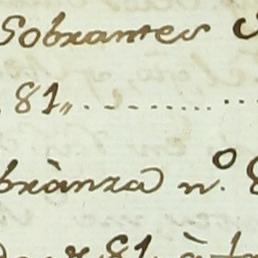 Sobrantes
81,, ............
branza n.º 8
81. à